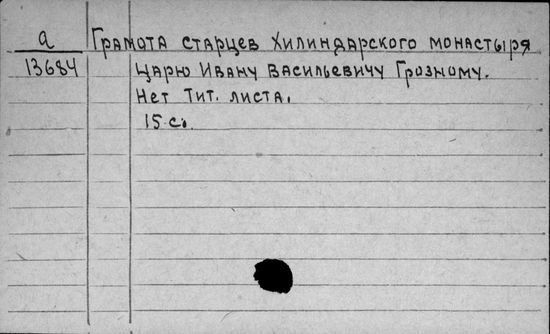 а
Грамота старцев Хилиндарского монастыря
13684
царю Ивану Васильевичу Грозному.
Нет тит. листа.
15 с.